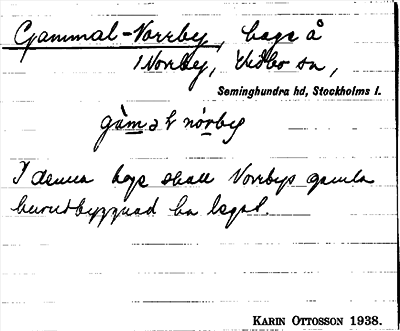 Gammal-Norrby, hage å
Norrby, Vidbo sn,
Seminghundra hd, Stockholms l.
gàməl nórby
I denna hage skall Norrbys gamla
huvudbyggnad ha legat.
KARIN OTTOSSON 1938.